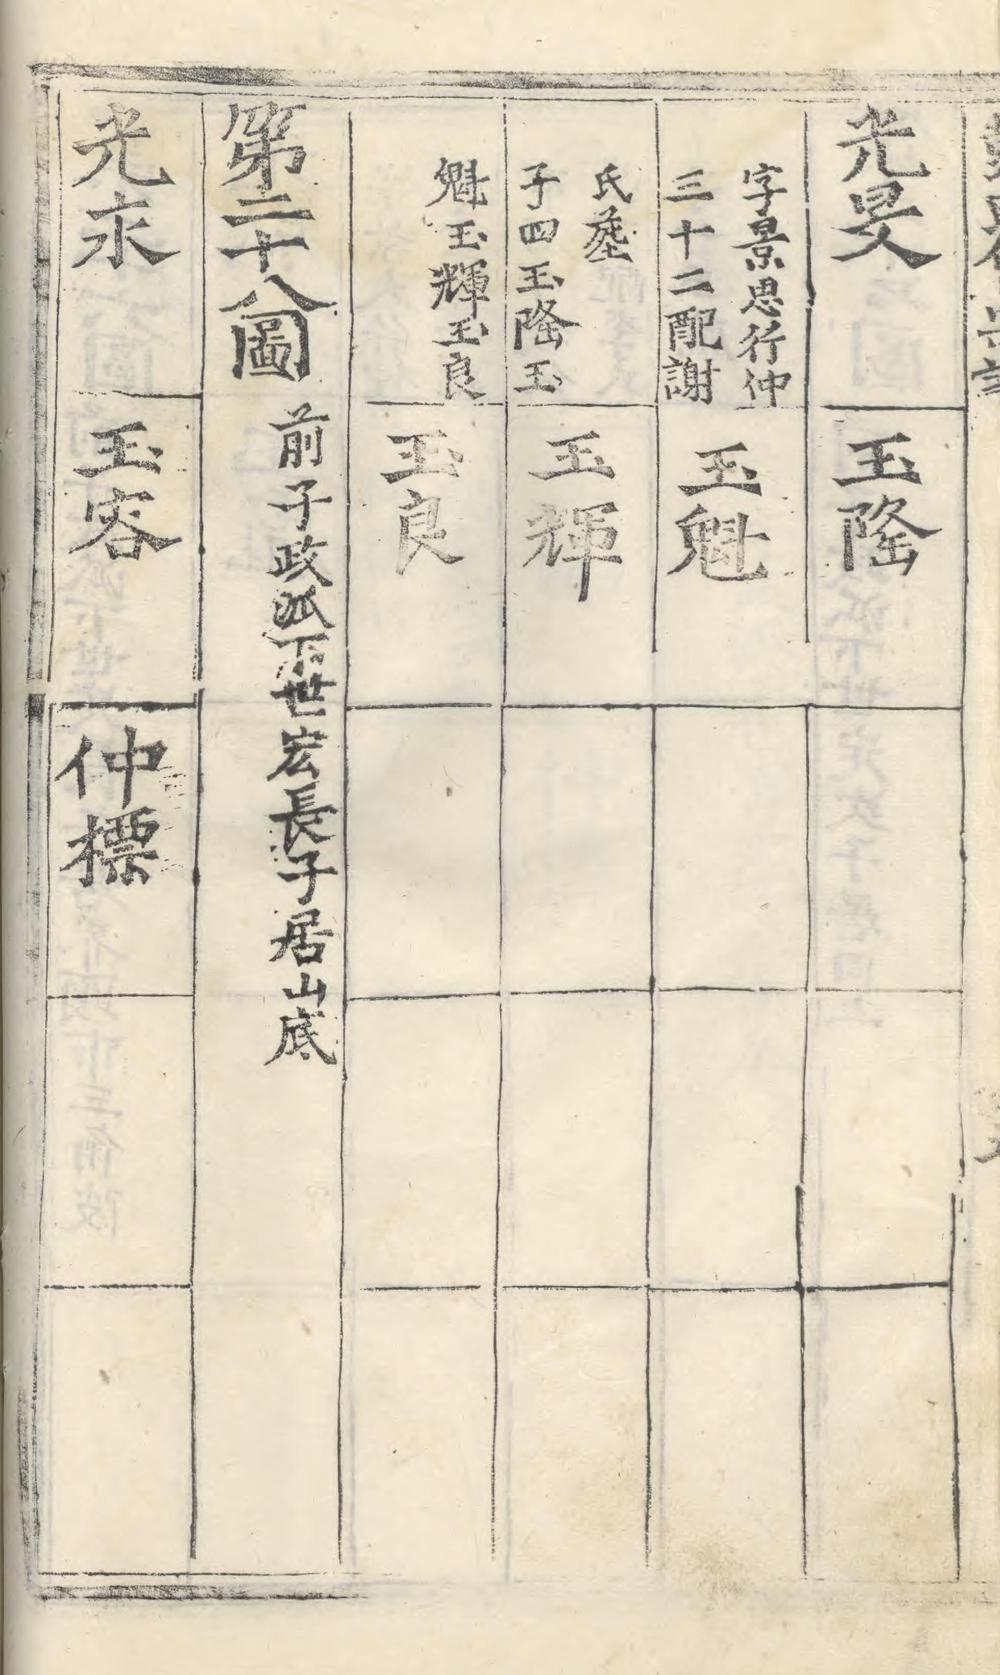 光旻
字景思行仲
三十二配謝
氏塟
子四玉隆玉
魁玉輝玉良
玉隆
玉魁
玉輝
玉良
第二十八圖
前子政派下世宏長子居山底
光求
玉容
仲標